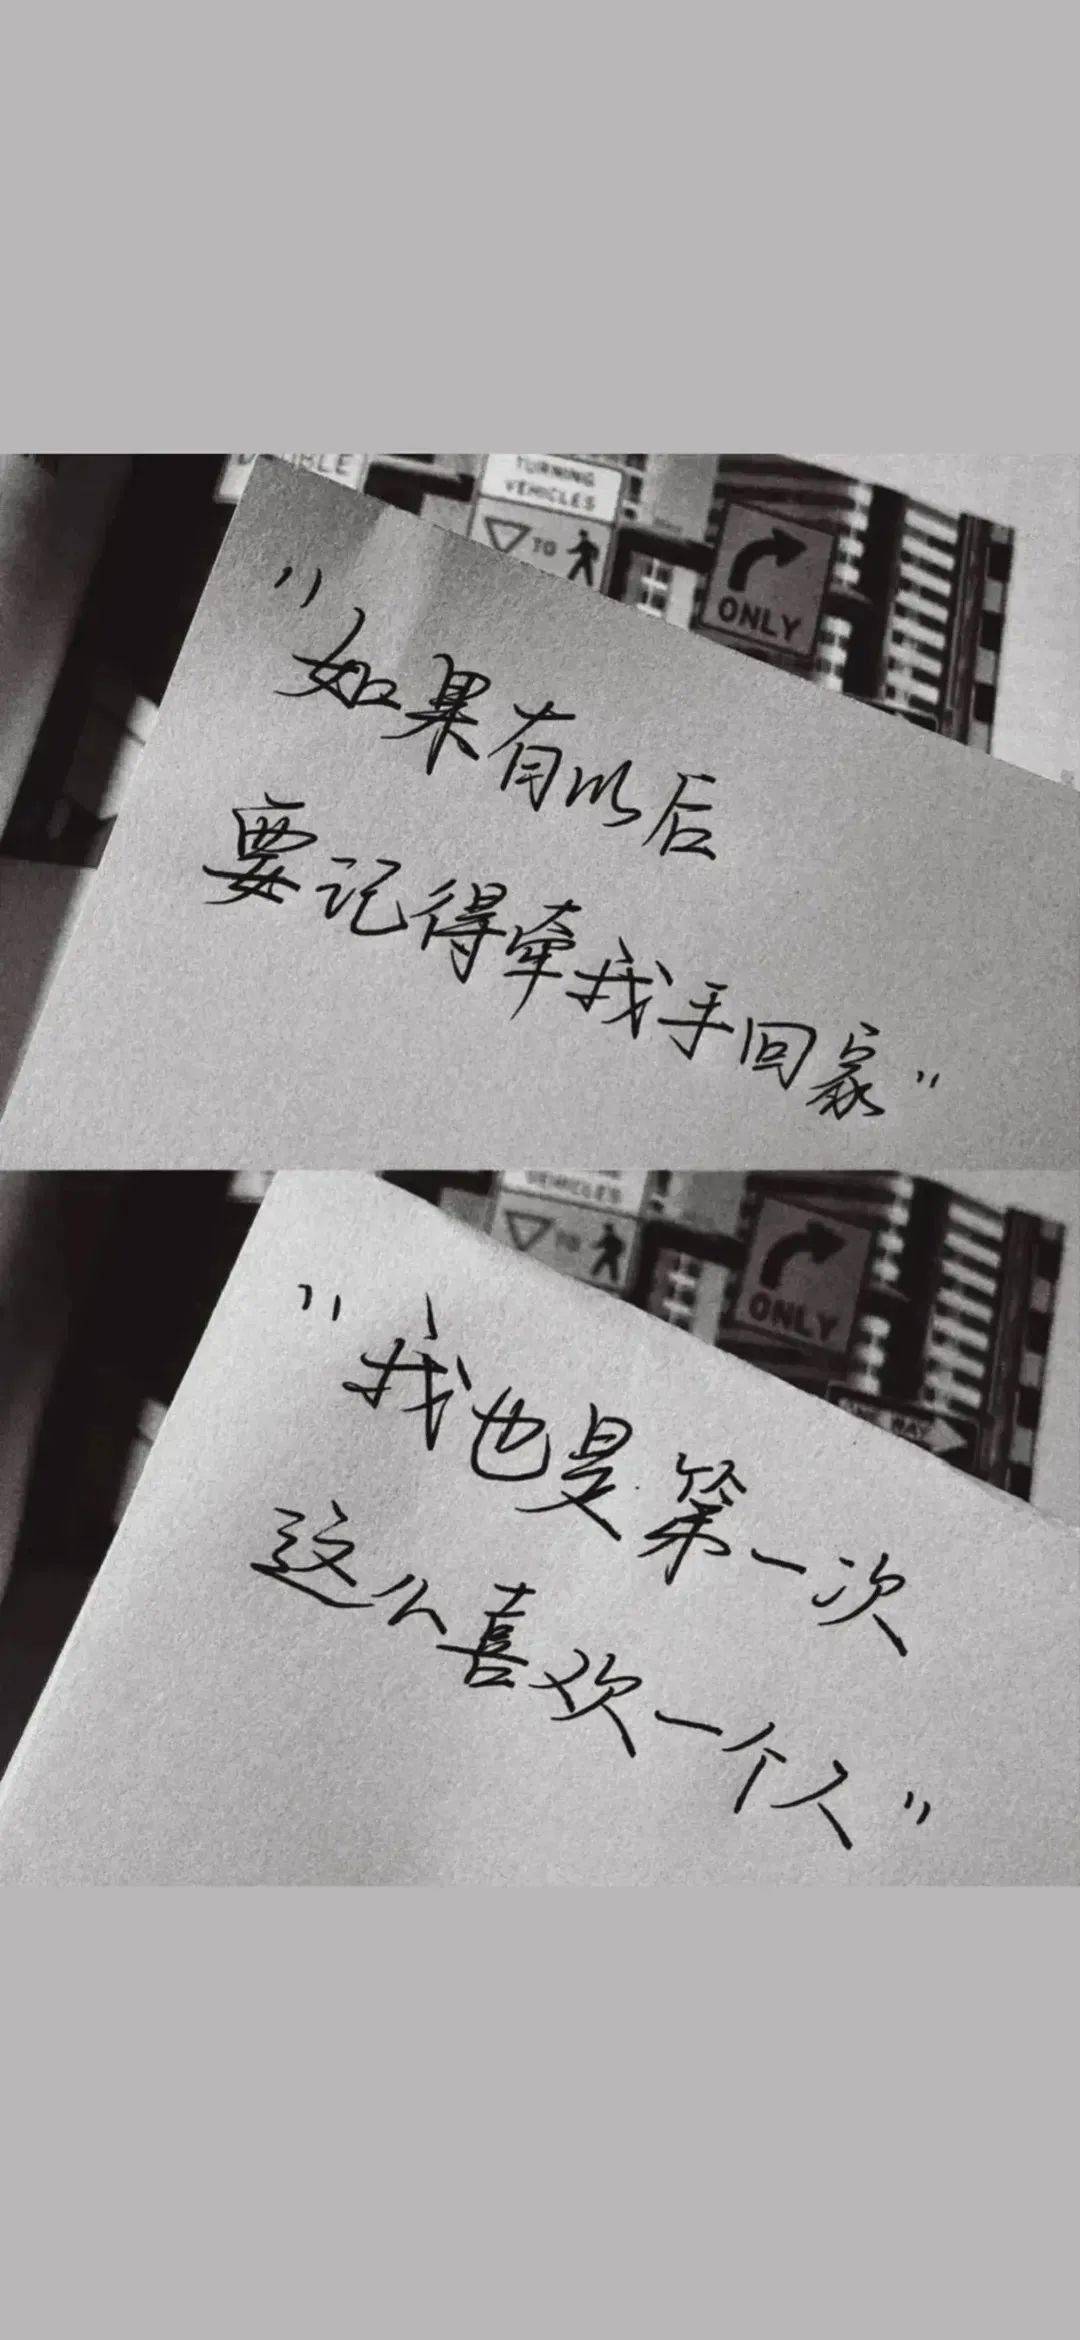 DOUBLE
TURNING
VEHICLES
TO
ONLY
"如果有以后
要记得牵我手回家"
VEHICLES
TO
ONLY
ONE WAY
"我也是第一次
这么喜欢一个人"